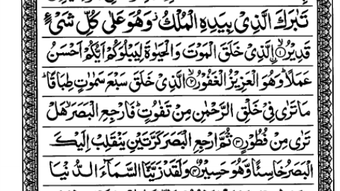 تَبٰرَكَ الَّذِیْ بِیَدِهِ الْمُلْكُ ؗ وَهُوَ عَلٰی كُلِّ شَیْءٍ
قَدِیْرُ ۙ﴿۱﴾ الَّذِیْ خَلَقَ الْمَوْتَ وَالْحَیٰوةَ لِیَبْلُوَكُمْ اَیُّكُمْ اَحْسَنُ
عَمَلًا ؕ وَهُوَ الْعَزِیْزُ الْغَفُوْرُ ۙ﴿۲﴾ الَّذِیْ خَلَقَ سَبْعَ سَمٰوٰتٍ طِبَاقًا ؕ
مَا تَرٰی فِیْ خَلْقِ الرَّحْمٰنِ مِنْ تَفٰوُتٍ ؕ فَارْجِعِ الْبَصَرَ ۙ هَلْ
تَرٰی مِنْ فُطُوْرٍ ﴿۳﴾ ثُمَّ ارْجِعِ الْبَصَرَ كَرَّتَیْنِ یَنْقَلِبْ اِلَیْكَ
الْبَصَرُ خَاسِئًا وَّهُوَ حَسِیْرٌ ﴿۴﴾ وَلَقَدْ زَیَّنَّا السَّمَآءَ الدُّنْیَا